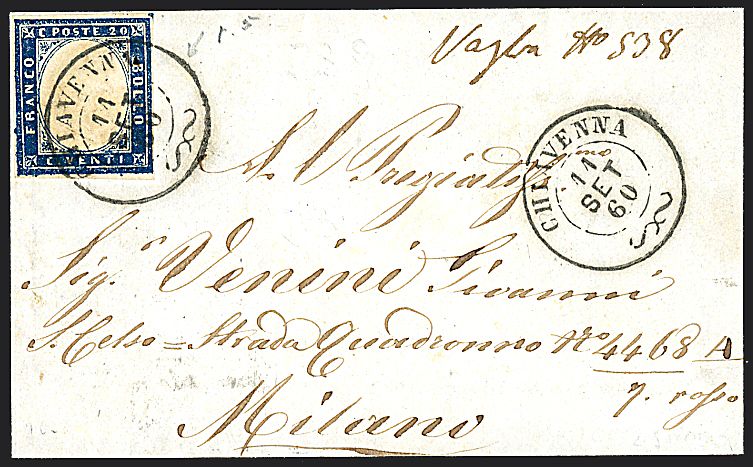 C. POSTE 20
FRANCO
BOLLO
C. VENTI
CHIAVENNA
11
SET
60
Vaglia No 538
CHIAVENNA
11
SET
60
Al Pregiatissmo
Sig.r Venini Giovanni
S. Celso = Strada Quadronno No 4468 A
n. rosso
Milano